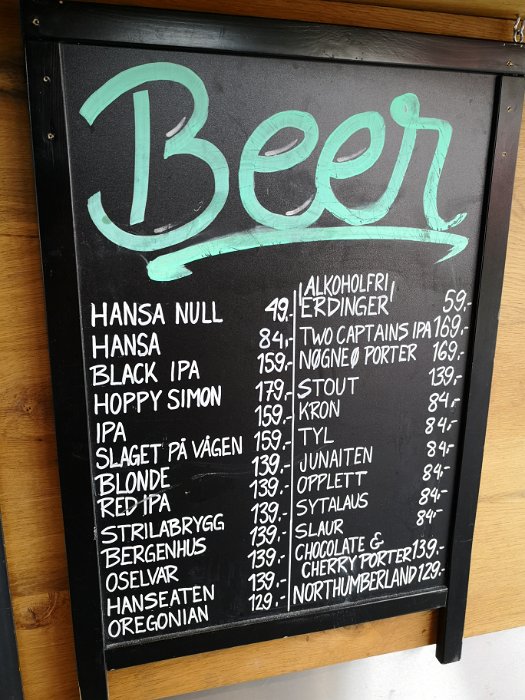 Beer
HANSA NULL 49,-
HANSA 84,-
BLACK IPA 159,-
HOPPY SIMON 179,-
IPA 159,-
SLAGET PÅ VÅGEN 159,-
BLONDE 139,-
RED IPA 139,-
STRILABRYGG 139,-
BERGENHUS 139,-
OSELVAR 139,-
HANSEATEN 139,-
OREGONIAN 129,-
ALKOHOLFRI
ERDINGER 59,-
TWO CAPTAINS IPA 169,-
NØGNE Ø PORTER 169,-
STOUT 139,-
KRON 84,-
TYL 84,-
JUNAITEN 84,-
OPPLETT 84,-
SYTALAUS 84,-
SLAUR 84,-
CHOCOLATE &
CHERRY PORTER 139,-
NORTHUMBERLAND 129,-